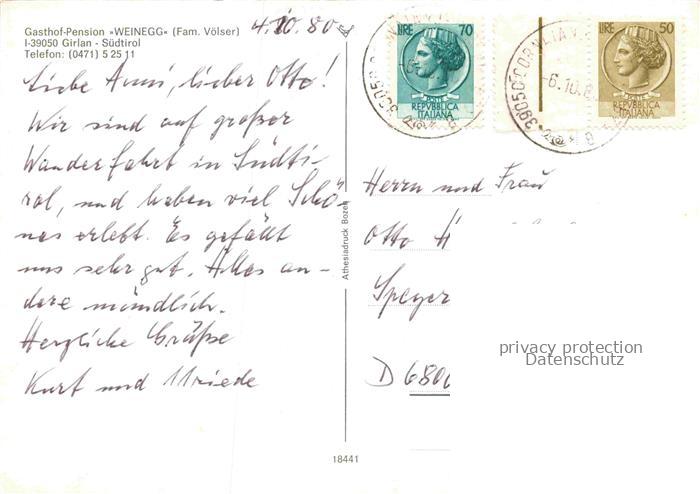 Gasthof-Pension »WEINEGG« (Fam. Völser)
I-39050 Girlan - Südtirol
Telefon: (0471) 5 25 11
4.10.80
Liebe Anni, lieber Otto!
Wir sind auf großer
Wanderfahrt in Südti-
rol, und haben viel Schö-
nes erlebt. Es gefällt
uns sehr gut. Alles an-
dere mündlich.
Herzliche Grüße
Kurt und
Athesiadruck Bozen
18441
LIRE 70
REPVBBLICA
ITALIANA
LIRE 50
REPVBBLICA
ITALIANA
39050
-6.10.8
Herrn und Frau
Otto H
Speyer
D 680
privacy protection
Datenschutz